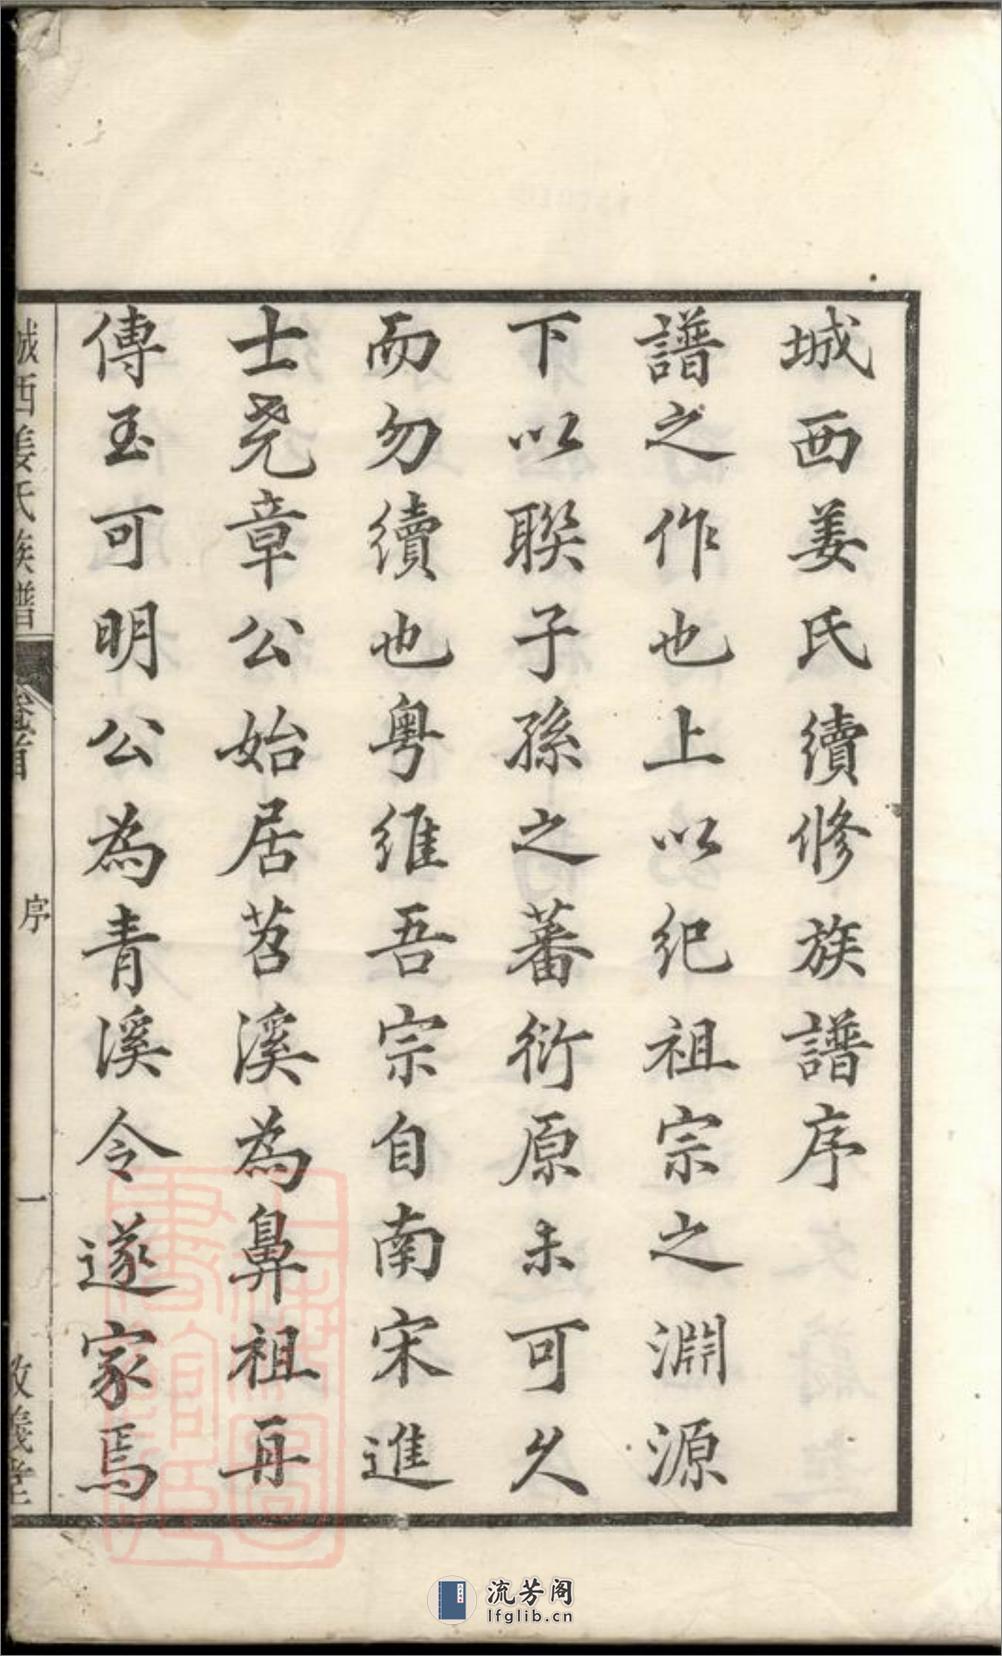 城西姜氏續修族譜序
譜之作也上以紀祖宗之淵源
下以聯子孫之蕃衍原未可久
而勿續也粤維吾宗自南宋進
士尧章公始居苕溪為鼻祖再
傳玉可明公為青溪令遂家焉
城西姜氏族譜
卷首
序
一
敦義堂
上海圖
書館藏
流芳阁
lfglib.cn